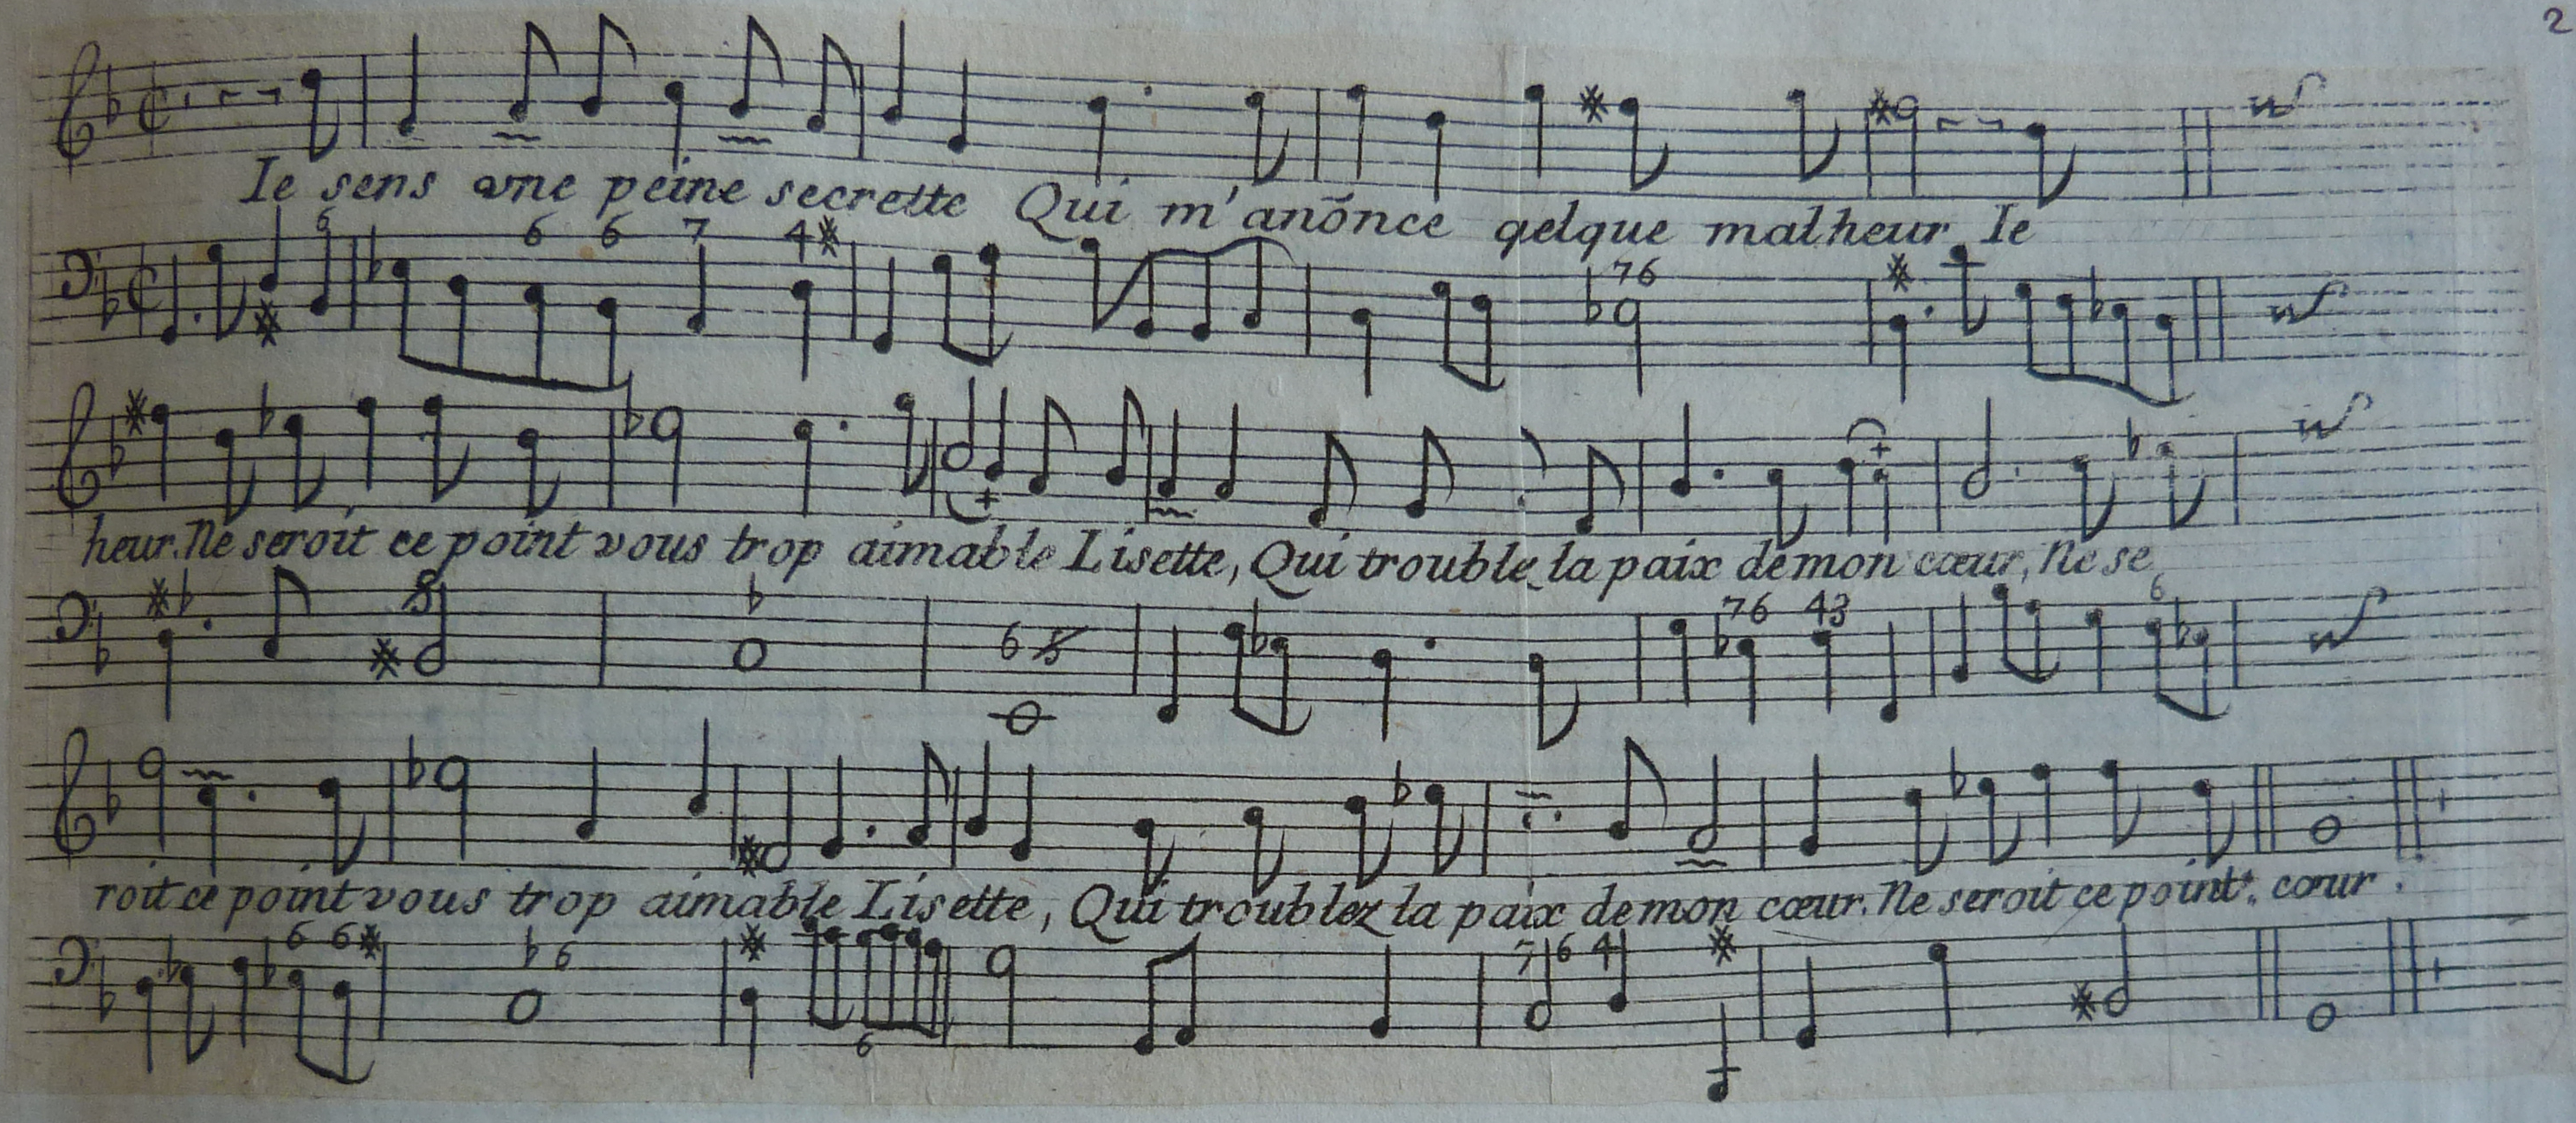 2
Ie sens une peine secrette Qui m'anõnce qelque malheur Ie
6 6 6 7 4
7 6
heur. Ne seroit ce point vous trop aimable Lisette, Qui trouble la paix de mon cœur, Ne se
8 6 5 7 6 4 3 6
roit ce point vous trop aimable Lisette, Qui troublez la paix de mon cœur. Ne seroit ce point. cœur.
6 6 6 6 7 6 4